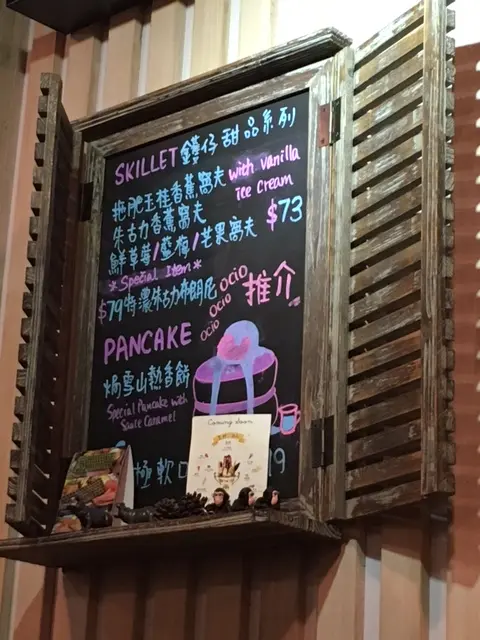 SKILLET 鑊仔甜品系列
拖肥玉桂香蕉窩夫 with vanilla
朱古力香蕉窩夫 ice cream
鮮草莓/藍梅/芒果窩夫 $73
*Special Item*
$79特濃朱古力布朗尼 ocio ocio ocio 推介
PANCAKE
焗雪山熱香餅
Special Pancake with
Sauté Caramel
Coming soon
極軟